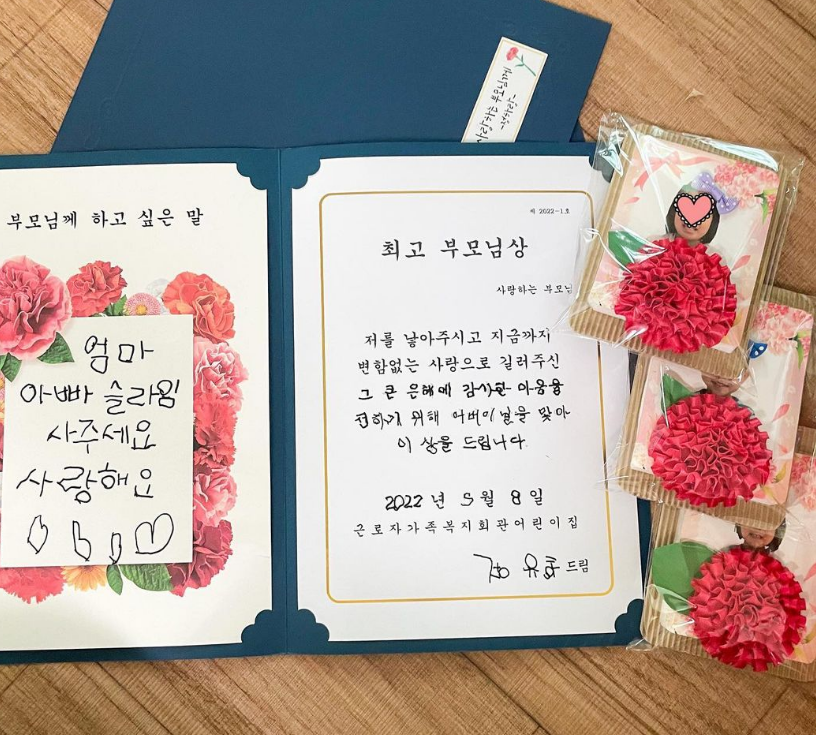 부모님께 하고 싶은 말
엄마
아빠 슬라임
사주세요
사랑해요
제 2022-1호
최고 부모님상
사랑하는 부모님
저를 낳아주시고 지금까지
변함없는 사랑으로 길러주신
그 큰 은혜에 감사한 마음을
전하기 위해 어버이날을 맞아
이 상을 드립니다.
2022 년 5 월 8 일
근로자가족복지회관어린이집
드림